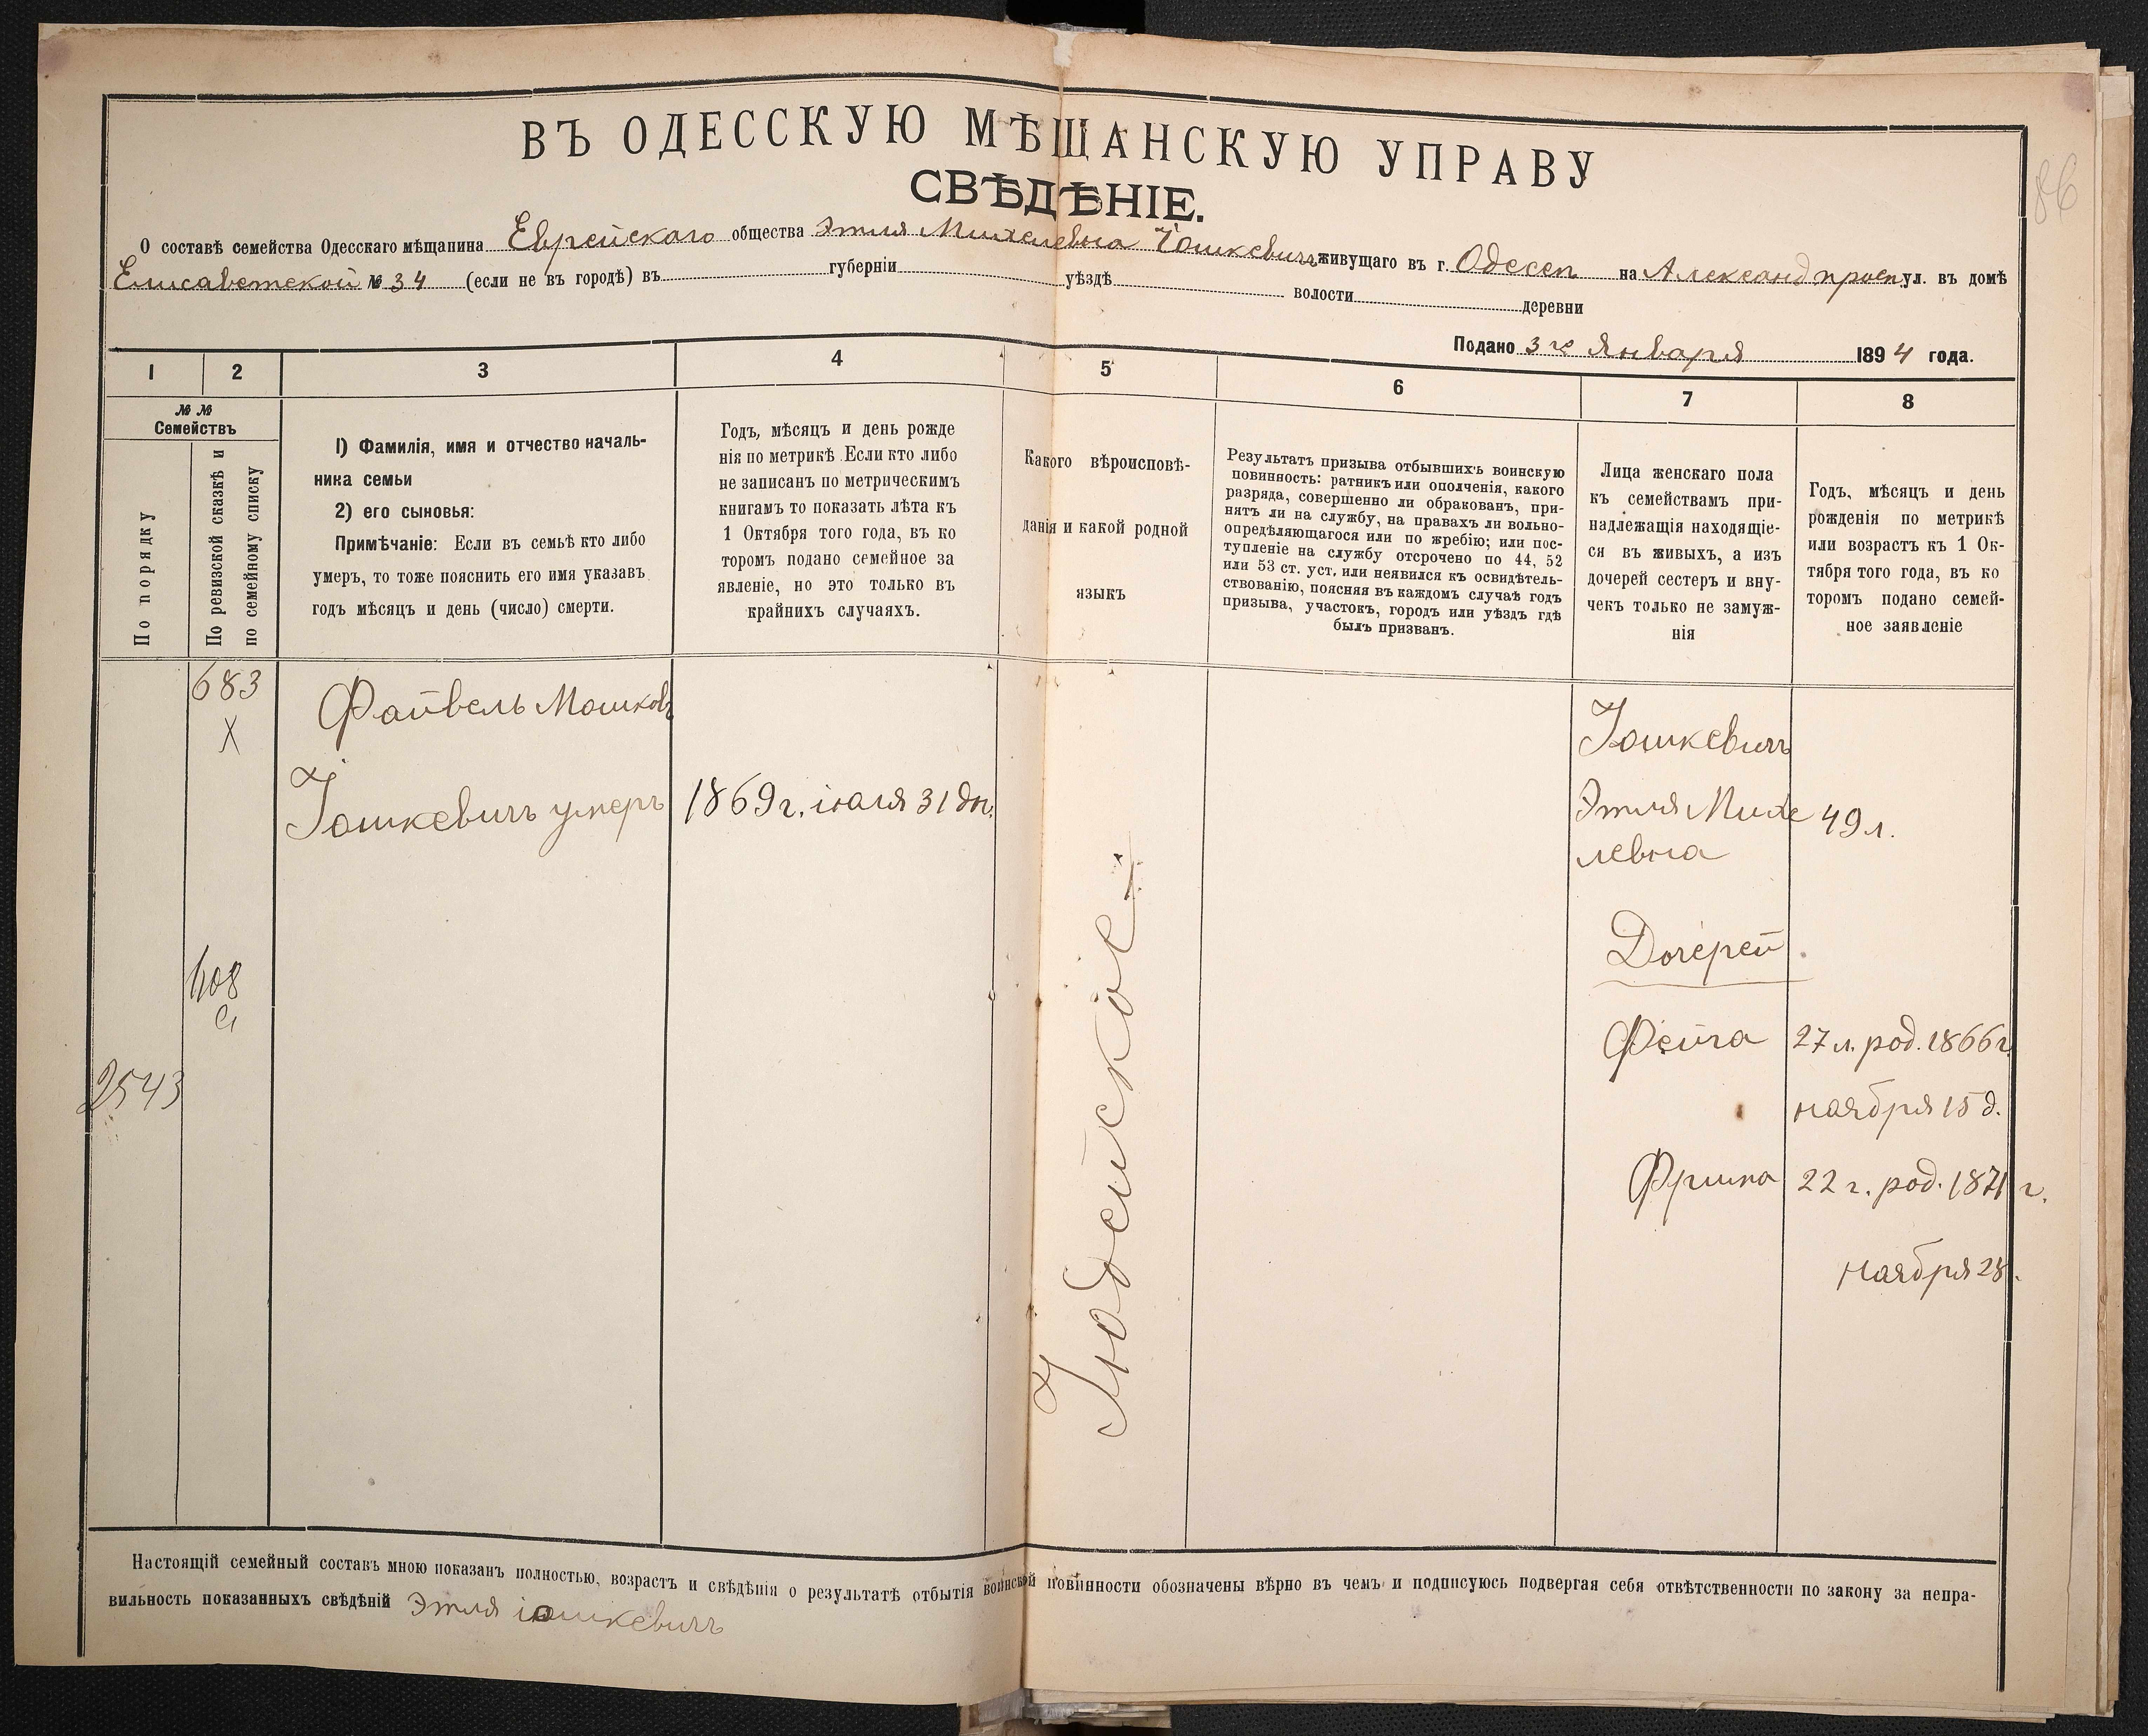 ВЪ ОДЕССКУЮ МѢЩАНСКУЮ УПРАВУ
СВѢДѢНІЕ.
86
О составѣ семейства Одесскаго мѣщанина Еврейскаго общества Этля Михелевна Іошкевичъ живущаго въ г. Одессѣ на Александ просп ул. въ домѣ
Елисаветской № 34 (если не въ городѣ) въ губерніи уѣздѣ волости деревни
Подано 3го Января 1894 года.
1 2 3 4 5 6 7 8
№ №
Семействъ
По порядку
По ревизской сказкѣ и
по семейному списку
1) Фамилія, имя и отчество началь-
ника семьи
2) его сыновья:
Примѣчаніе: Если въ семьѣ кто либо
умеръ, то тоже пояснить его имя указавъ
годъ мѣсяцъ и день (число) смерти.
Годъ, мѣсяцъ и день рожде
нія по метрикѣ Если кто либо
не записанъ по метрическимъ
книгамъ то показать лѣта къ
1 Октября того года, въ ко
торомъ подано семейное за
явленіе, но это только въ
крайнихъ случаяхъ.
Какого вѣроисповѣ-
данія и какой родной
языкъ
Результатъ призыва отбывшихъ воинскую
повинность: ратникъ или ополченія, какого
разряда, совершенно ли обракованъ, при-
нятъ ли на службу, на правахъ ли вольно-
опредѣляющагося или по жребію; или пос-
тупленіе на службу отсрочено по 44, 52
или 53 ст. уст. или неявился къ освидѣтель-
ствованію, поясняя въ каждомъ случаѣ годъ
призыва, участокъ, городъ или уѣздъ гдѣ
былъ призванъ.
Лица женскаго пола
къ семействамъ при-
надлежащія находящіе-
ся въ живыхъ, а изъ
дочерей сестеръ и вну-
чекъ только не замуж-
нія
Годъ, мѣсяцъ и день
рожденія по метрикѣ
или возрастъ къ 1 Ок-
тября того года, въ ко
торомъ подано семей-
ное заявленіе
683
X
Файвель Мошковъ
Іошкевичъ умеръ
1869 г. іюля 31 дн.
408
2543
Іюдейское
Іошкевичъ
Этля Михе
левна
49 л.
Дочерей
Фейга
27 л. род. 1866 г.
ноября 15 д.
Фрима
22 г. род. 1871 г.
ноября 28.
Настоящій семейный составъ мною показанъ полностью, возрастъ и свѣдѣнія о результатѣ отбытія воинской повинности обозначены вѣрно въ чемъ и подписуюсь подвергая себя отвѣтственности по закону за непра-
вильность показанныхъ свѣдѣній Этля іошкевичъ